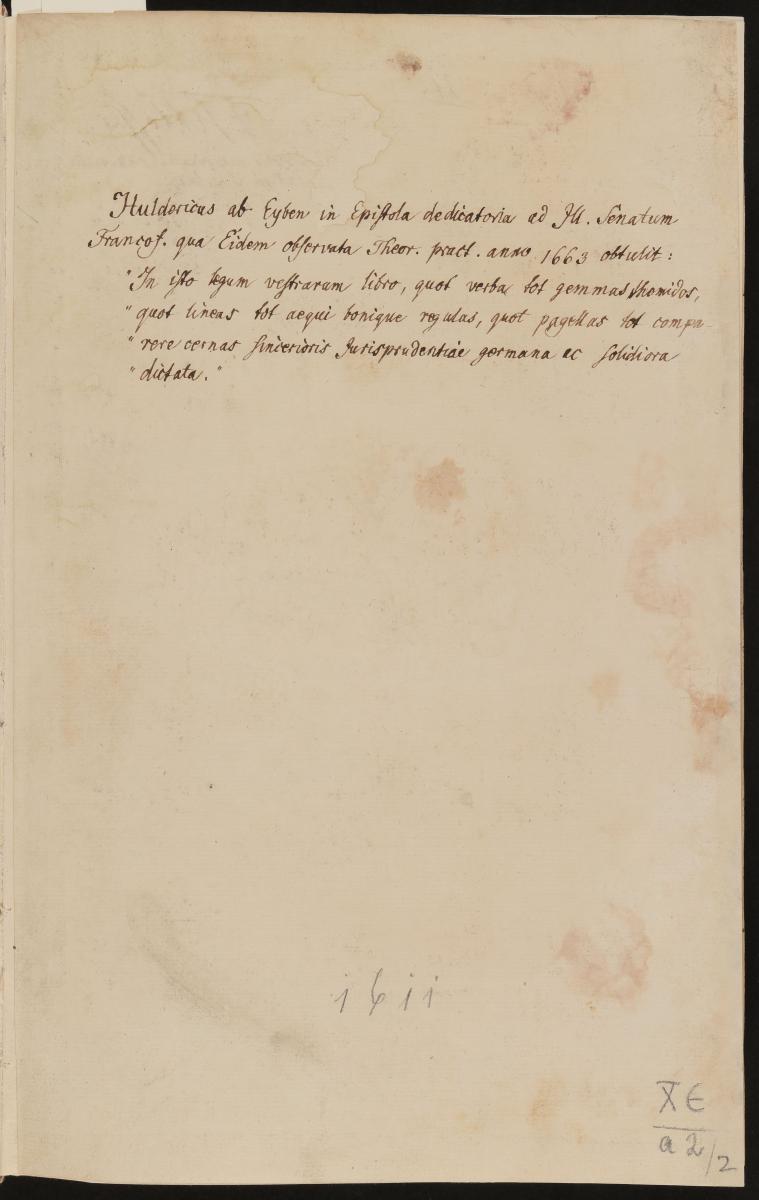 Huldericus ab Eyben in Epistola dedicatoria ad Ill. Senatum
Francof. qua Eidem observata Theor. pract. anno 1663 obtulit:
"In isto legum vestrarum libro, quot verba tot gemmas Themidos,
" quot lineas tot aequi bonique regulas, quot pagellas tot compa-
" rere cernas sincerioris Jurisprudentiae germana ac solidiora
" dictata."
1611
XE
a 2/2